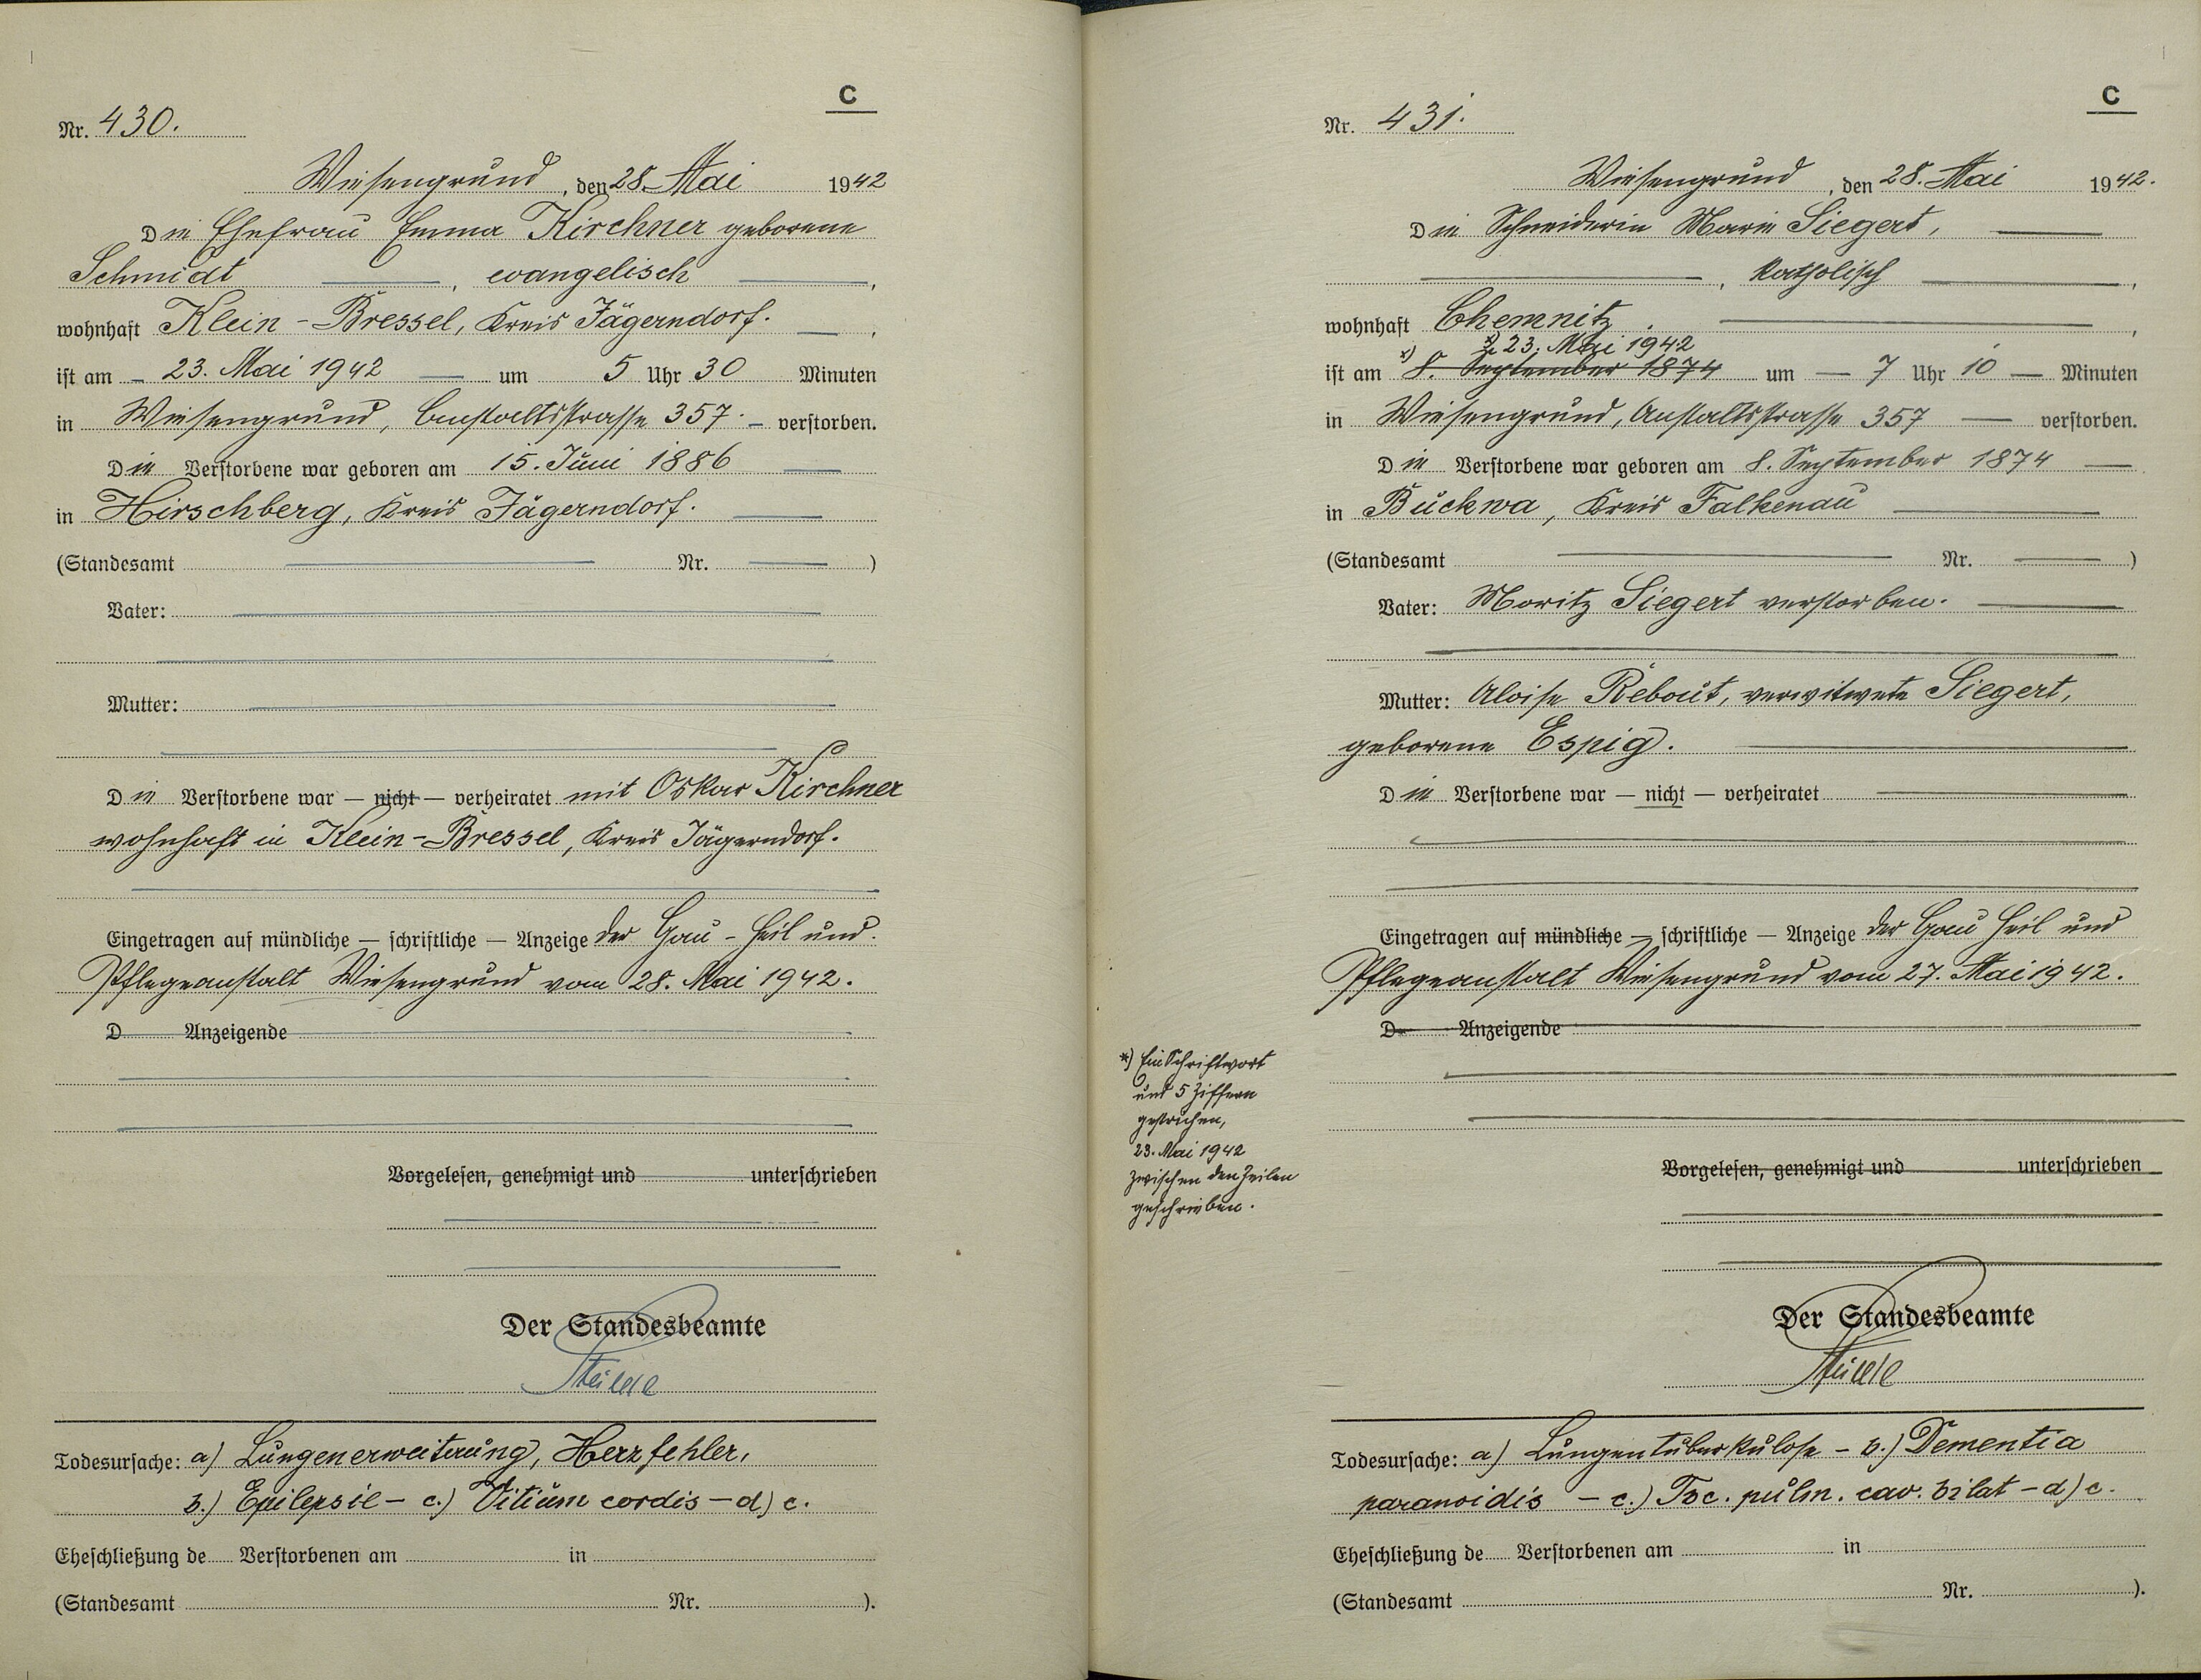 C
Nr. 430.
Wiesengrund, den 28. Mai 1942
Die Ehefrau Emma Kirchner geborene
Schmidt, evangelisch,
wohnhaft Klein-Bressel, Kreis Jägerndorf.,
ist am 23. Mai 1942 um 5 Uhr 30 Minuten
in Wiesengrund, Anstaltsstrasse 357. verstorben.
Die Verstorbene war geboren am 15. Juni 1886
in Hirschberg, Kreis Jägerndorf.
(Standesamt Nr. )
Vater:
Mutter:
Die Verstorbene war — nicht — verheiratet mit Oskar Kirchner
wohnhaft in Klein-Bressel, Kreis Jägerndorf.
Eingetragen auf mündliche — schriftliche — Anzeige der Gau-Heil und
Pflegeanstalt Wiesengrund vom 28. Mai 1942.
D Anzeigende
Vorgelesen, genehmigt und unterschrieben
Der Standesbeamte
Todesursache: a) Lungenerweiterung, Herzfehler,
b.) Epilepsie - c.) Vitium cordis - d) c.
Eheschließung de Verstorbenen am in
(Standesamt Nr. ).
C
Nr. 431.
Wiesengrund, den 28. Mai 1942.
Die Schneiderin Marie Siegert,
, katholisch,
wohnhaft Chemnitz.,
*) 23. Mai 1942
ist am *) 8. September 1874 um 7 Uhr 10 Minuten
in Wiesengrund, Anstaltsstrasse 357 verstorben.
Die Verstorbene war geboren am 8. September 1874
in Buckwa, Kreis Falkenau
(Standesamt Nr. )
Vater: Moritz Siegert verstorben.
Mutter: Aloise Rebout, verwitwete Siegert,
geborene Espig.
Die Verstorbene war — nicht — verheiratet
Eingetragen auf mündliche — schriftliche — Anzeige der Gau Heil und
Pflegeanstalt Wiesengrund vom 27. Mai 1942.
D Anzeigende
*) Ein Schriftwort
und 5 Ziffern
gestrichen,
23. Mai 1942
zwischen den Zeilen
geschrieben.
Vorgelesen, genehmigt und unterschrieben
Der Standesbeamte
Todesursache: a) Lungentuberkulose - b.) Dementia
paranoidis - c.) Tbc. pulm. cav. bilat - d) c.
Eheschließung de Verstorbenen am in
(Standesamt Nr. ).